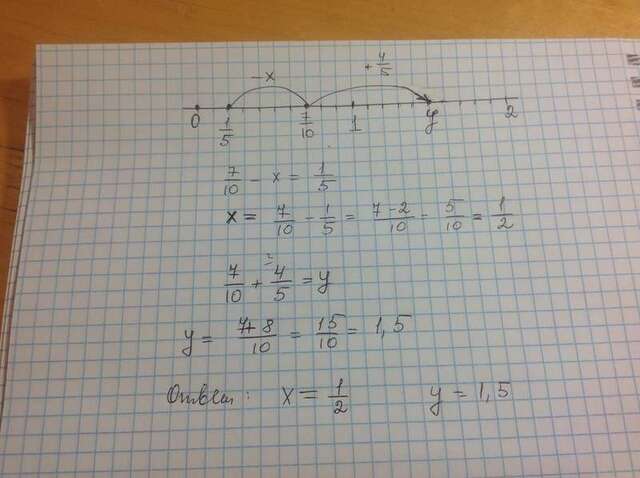 -x +4/5
0 1/5 7/10 1 y 2
7/10 - x = 1/5
x = 7/10 - 1/5 = 7-2/10 - 5/10 = 1/2
7/10 + 4/5 = y
y = 7+8/10 = 15/10 = 1,5
Ответ: x = 1/2 y = 1,5